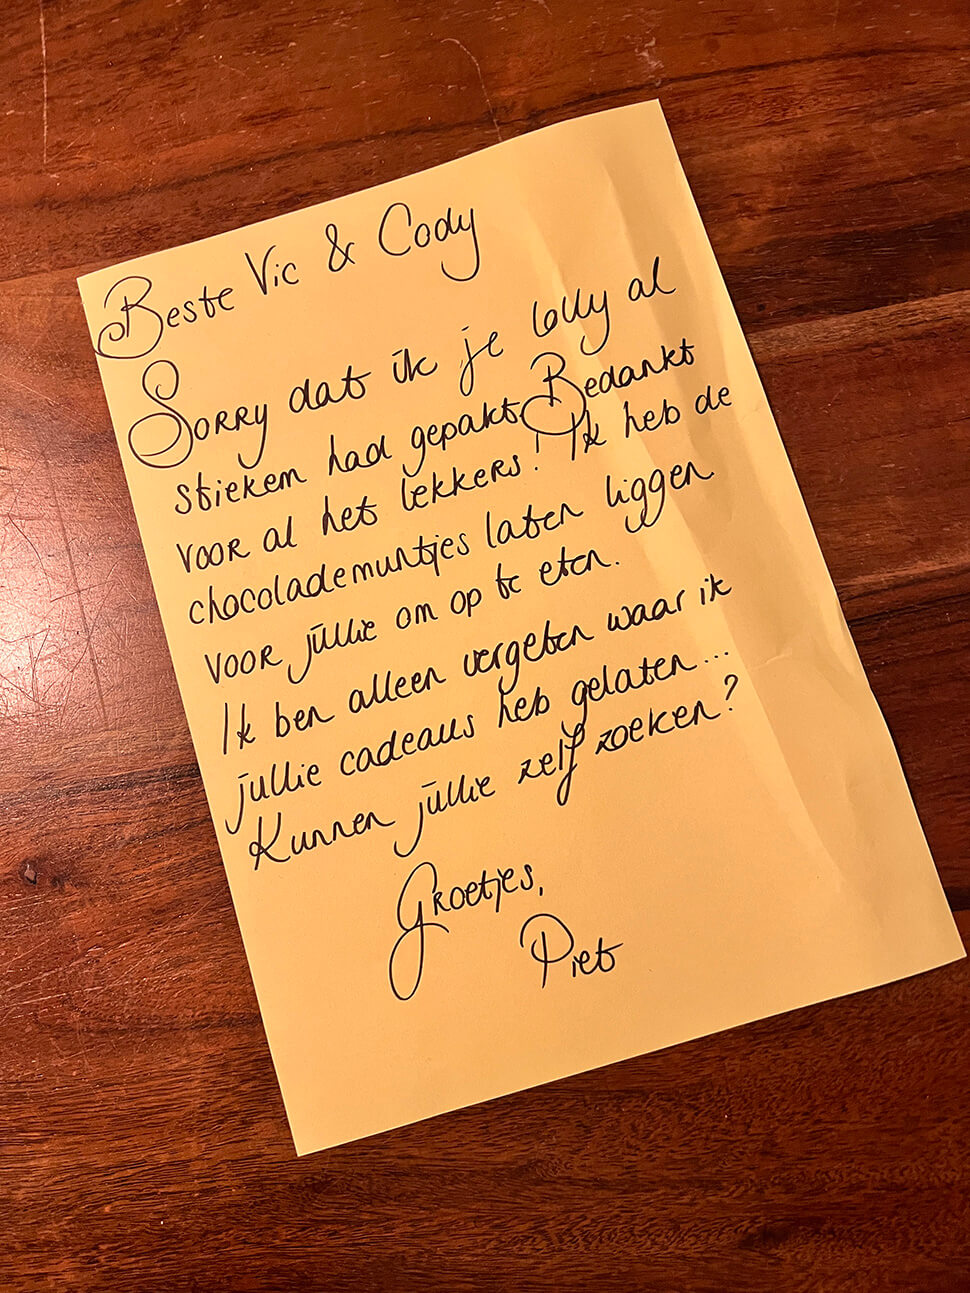 Beste Vic & Cody
Sorry dat ik je lolly al
stiekem had gepakt. Bedankt
voor al het lekkers! Ik heb de
chocolademuntjes laten liggen
voor jullie om op te eten.
Ik ben alleen vergeten waar ik
jullie cadeaus heb gelaten...
Kunnen jullie zelf zoeken?
Groetjes,
Piet